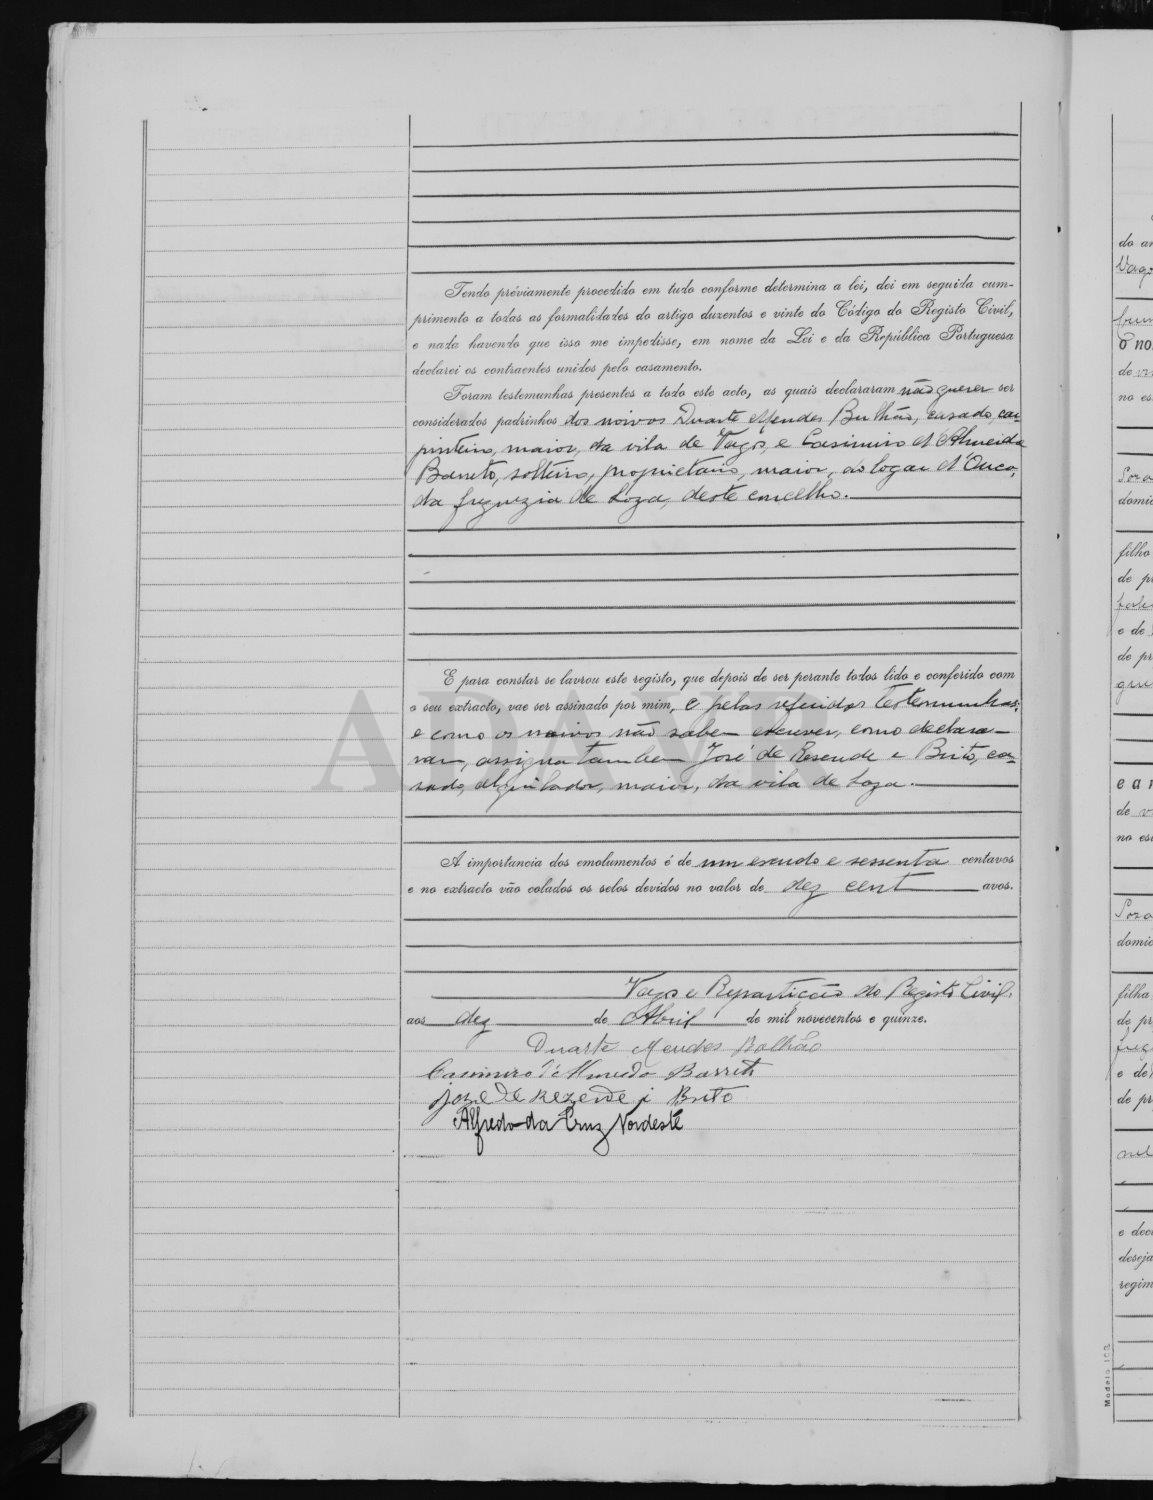 Tendo préviamente procedido em tudo conforme determina a lei, dei em seguida cum-
primento a todas as formalidades do artigo duzentos e vinte do Código do Registo Civil,
e nada havendo que isso me impedisse, em nome da Lei e da República Portuguesa
declarei os contraentes unidos pelo casamento.
Foram testemunhas presentes a todo este acto, as quais declararam não querer ser
considerados padrinhos dos noivos Duarte Mendes Bulhão, casado, car-
pinteiro, maior, da vila de Vagos, e Casimiro d'Almeida
Barreto, solteiro, proprietario, maior, do logar d'Ouca,
da freguezia de Soza, deste concelho.
E para constar se lavrou este registo, que depois de ser perante todos lido e conferido com
o seu extracto, vae ser assinado por mim, e pelas referidas testemunhas;
e como os noivos não sabem escrever, como declara-
ram, assigna tambem José de Resende e Brito, ca-
sado, alquilador, maior, da vila de Soza.
A importancia dos emolumentos é de um escudo e sessenta centavos
e no extracto vão colados os selos devidos no valor de dez cent avos.
Vagos e Repartição do Registo Civil,
aos dez de Abril de mil novecentos e quinze.
Duarte Mendes Bolhão
Casimiro d'Almeida Barreto
joze de Rezende i Brito
Alfredo da Cruz Nordeste
ADAVR
do
Vag
o no
de
no es
Soza
domic
filho
de p
e de
de p
que
c a n
de v
no es
Soza
domic
filha
de p
freg
e de
de p
e dec
deseja
regim
Modelo 102